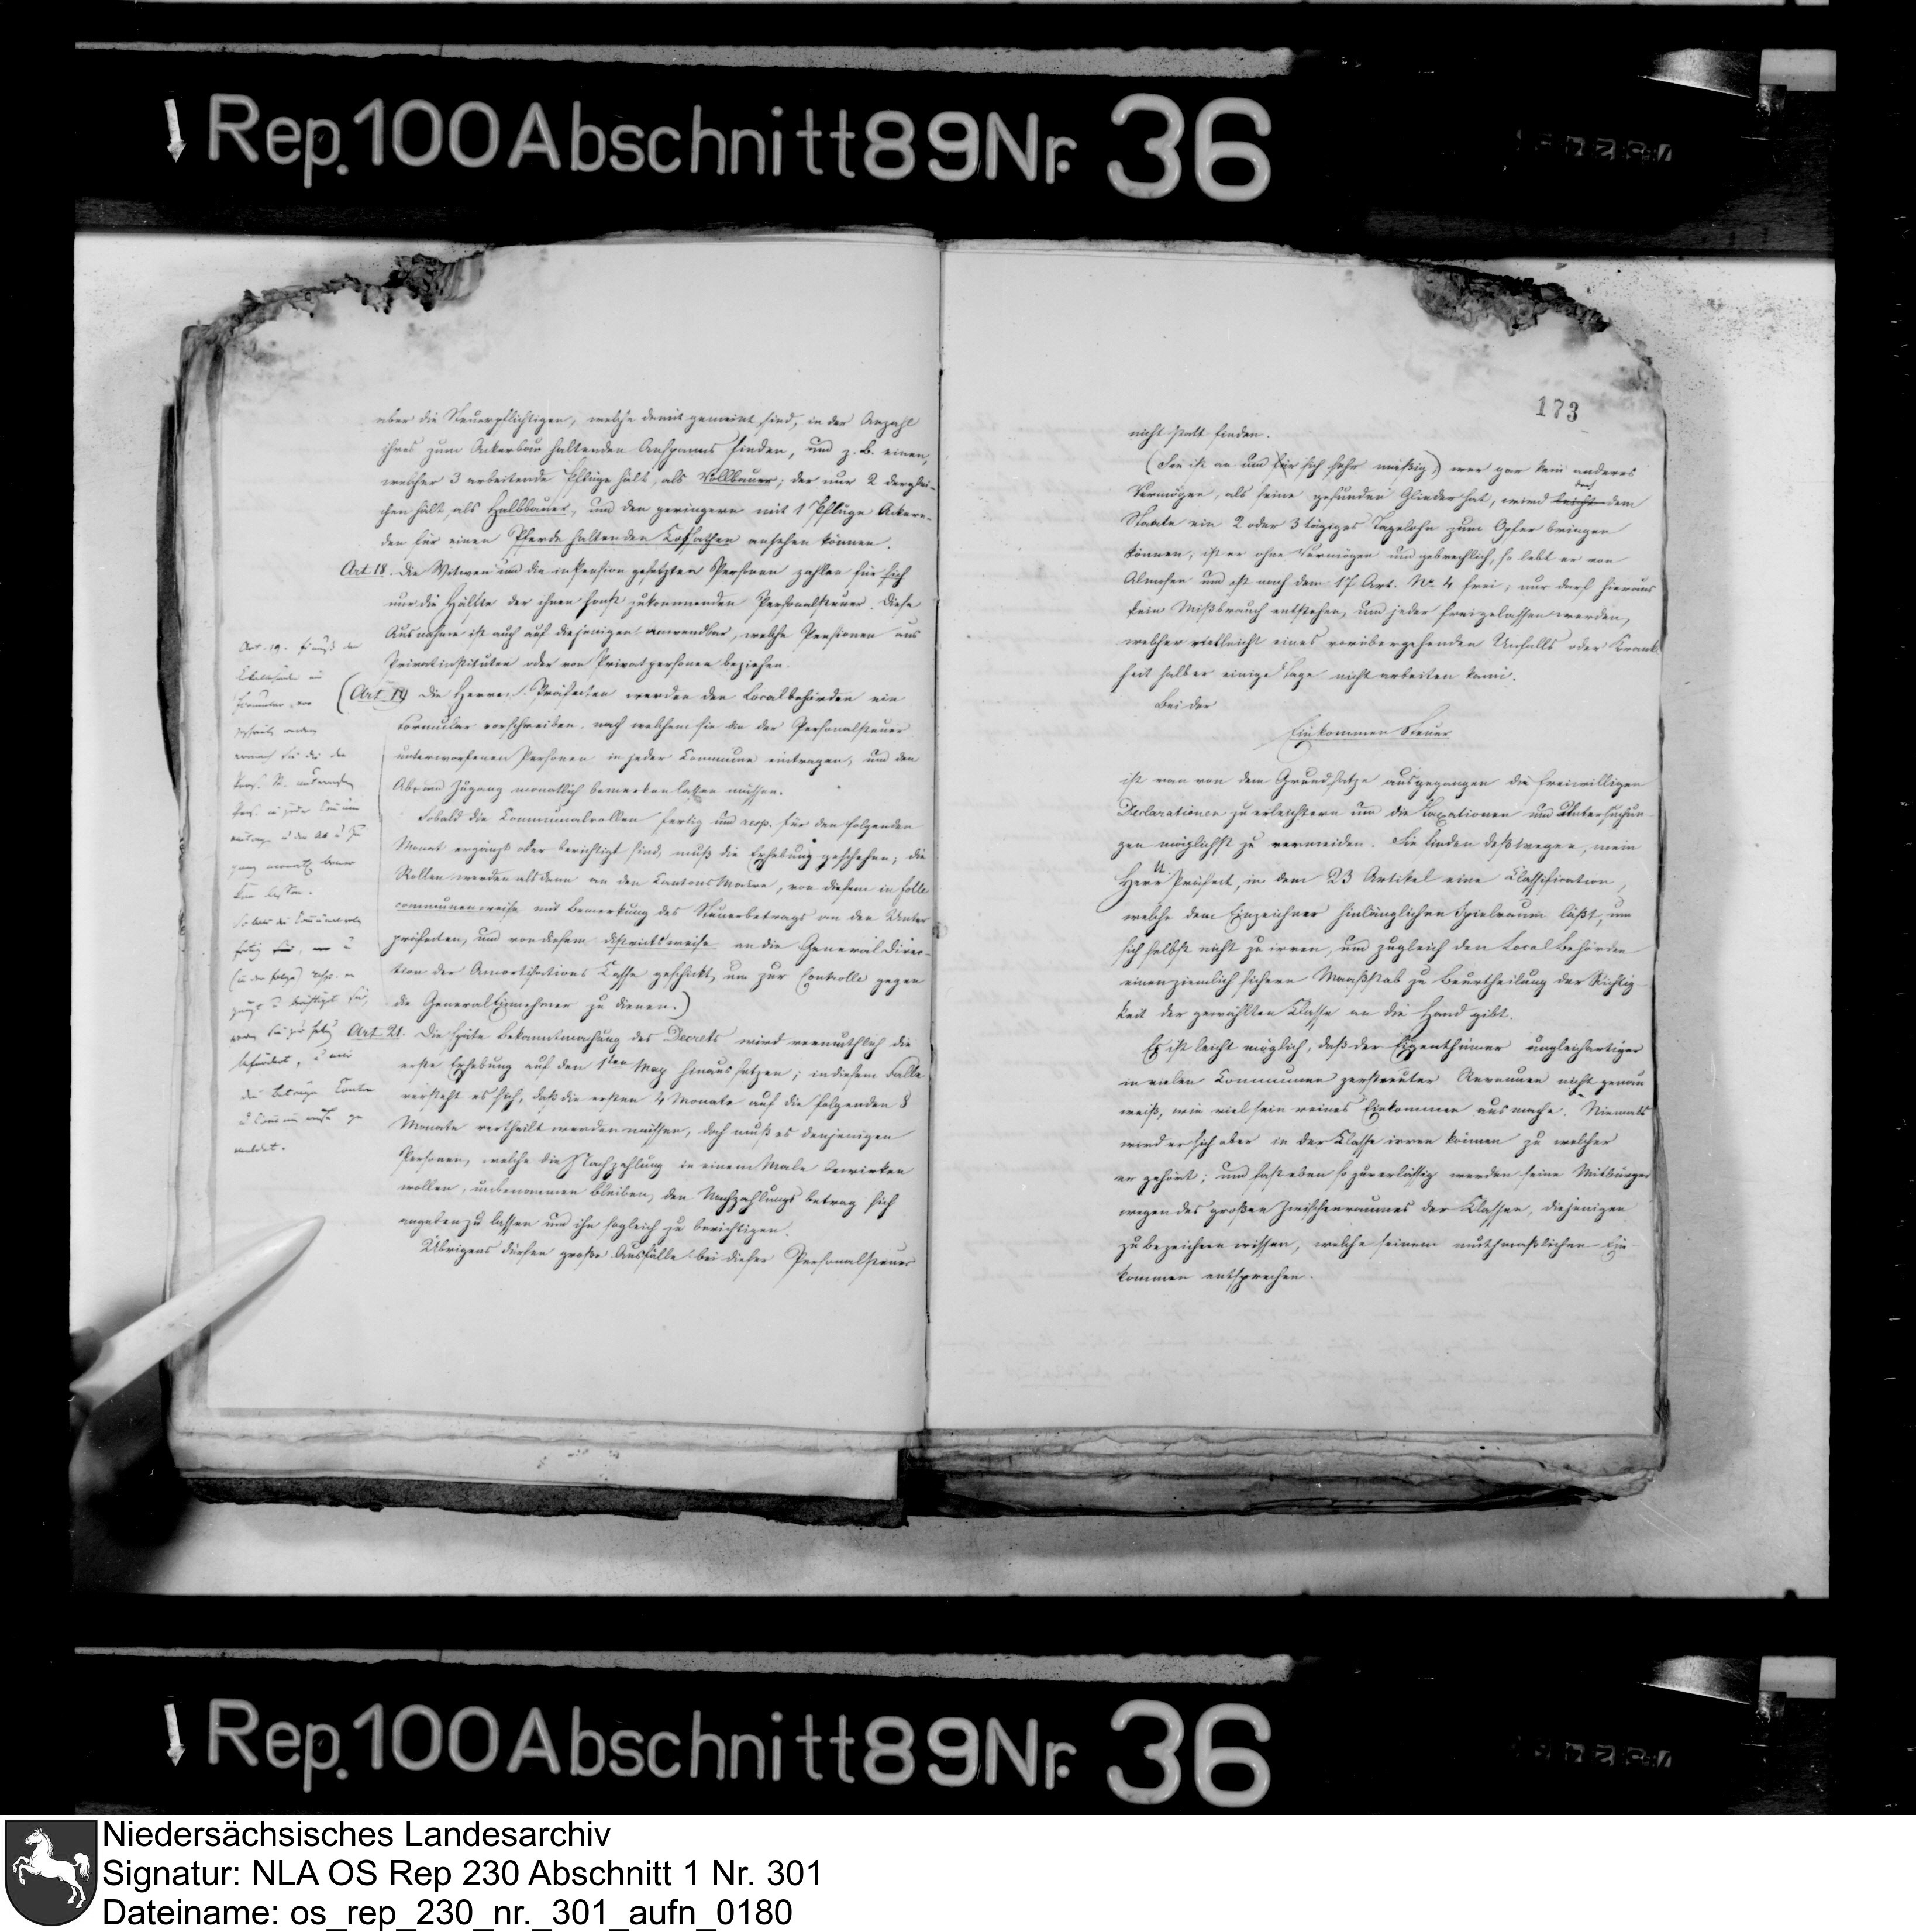 Rep. 100 Abschnitt 89 Nr. 36
aber die Steuerpflichtigen, welche damit gemeint sind, in der Anzahl
ihres zum Ackerbau haltenden Anspanns finden, und z. B. einen,
welcher 3 arbeitende Pflüge hält, als Vollbauer; der nur 2 derglei-
chen hält, als Halbbauer, und den geringern mit 1 Pfluge Ackern-
den für einen Pferde haltenden Kossathen ansehen können.
Art. 18. Die Witwen und die in Pension gesetzten Personen zahlen für sich
nur die Hälfte der ihnen sonst zukommenden Personalsteuer. Diese
Ausnahme ist auch auf diejenigen anwendbar, welche Pensionen aus
Privatinstituten oder von Privatpersonen beziehen.
(Art. 19 Die Herren Präfecten werden den Localbehörden ein
Formular vorschreiben, nach welchem sie die der Personalsteuer
unterworfenen Personen in jeder Commune eintragen, und den
Ab- und Zugang monatlich bemerken lassen müssen.
Sobald die Communalrollen fertig und resp. für den folgenden
Monat ergänzt oder berichtigt sind, muß die Erhebung geschehen; die
Rollen werden alsdann an den Cantons Maire, von diesem in folle
communenweise mit Bemerkung des Steuerbetrags an den Unter
präfecten, und von diesem districtsweise an die General Direc-
tion der Amortisations Casse geschickt, um zur Controlle gegen
die General Einnehmer zu dienen.)
Art. 21. Die späte Bekanntmachung des Decrets wird vermuthlich die
erste Erhebung auf den 1sten May hinaus setzen; in diesem Falle
versteht es sich, daß die ersten 4 Monate auf die folgenden 8
Monate vertheilt werden müssen, doch muß es denjenigen
Personen, welche die Nachzahlung in einem Male bewirken
wollen, unbenommen bleiben, den Nachzahlungs betrag sich
angeben zu lassen und ihn sogleich zu berichtigen.
Übrigens dürfen große Ausfälle bei dieser Personalsteuer
Art. 19.
Formular
monatl.
fertig
173
nicht statt finden.
(Sie ist an und für sich sehr mäßig,) wer gar kein anderes
Vermögen, als seine gesunden Glieder hat, wird leicht doch dem
Staate ein 2 oder 3 tägiges Tagelohn zum Opfer bringen
können; ist er ohne Vermögen und gebrechlich, so lebt er von
Almosen und ist nach dem 17 Art. No 4 frei; nur darf hieraus
kein Mißbrauch entstehen, und jeder freigelassen werden,
welcher vielleicht eines vorübergehenden Unfalls oder Krank
heit halber einige Tage nicht arbeiten kann.
Bei der
Einkommen Steuer
ist man von dem Grundsatze ausgegangen die freiwilligen
Declarationen zu erleichtern und die Taxationen und Untersuchun-
gen möglichst zu vermeiden. Sie finden deßwegen, mein
Herr Präfect, in dem 23 Artikel eine Classification,
welche dem Einzeichner hinlänglichen Spielraum läßt, um
sich selbst nicht zu irren, und zugleich den Local Behörden
einen ziemlich sichern Maaßstab zu Beurtheilung der Richtig
keit der gewählten Classe an die Hand gibt.
Es ist leicht möglich, daß der Eigenthümer ungleichartiger
in vielen Communen zerstreuter Revenuen nicht genau
weiß, wie viel sein reines Einkommen ausmache. Niemals
wird er sich aber in der Classe irren können zu welcher
er gehört; und fast eben so zuverlässig werden seine Mitbürger
wegen des großen Zwischenraumes der Classen, diejenigen
zu bezeichnen wissen, welche seinem muthmaßlichen Ein
kommen entsprechen.
Rep. 100 Abschnitt 89 Nr. 36
Niedersächsisches Landesarchiv
Signatur: NLA OS Rep 230 Abschnitt 1 Nr. 301
Dateiname: os_rep_230_nr._301_aufn_0180